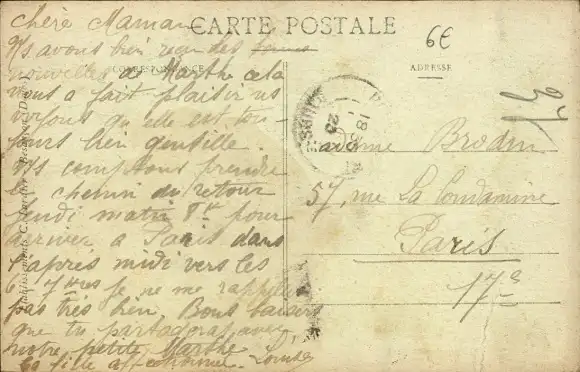 CARTE POSTALE
CORRESPONDANCE
ADRESSE
6€
Chère Maman
N/s avons bien reçu des
nouvelles de Marthe cela
nous a fait plaisir ns
voyons qu'elle est tou-
jours bien gentille.
N/s comptons prendre
le chemin du retour
jeudi matin pour
arriver a Paris dans
l'après midi vers les
6 7 hres je ne me rappelle
pas très bien. Bons baisers
que tu partageras avec
notre petite Marthe
ta fille affectionnée Louise
Madame Brodin
57, rue La Condamine
Paris
17e